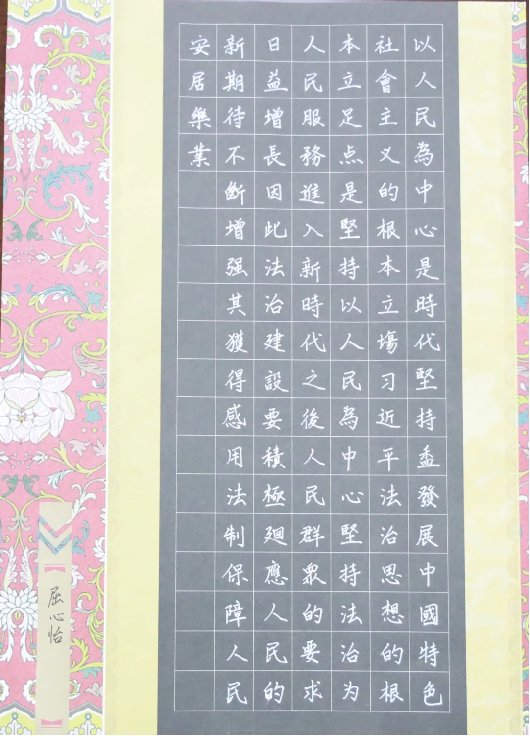 以人民為中心是時代堅持盉發展中國特色
社會主义的根本立塲习近平法治思想的根
本立足点是堅持以人民為中心堅持法治为
人民服務進入新時代之後人民群眾的要求
日益增長因此法治建設要積極廻應人民的
新期待不斷增强其獲得感用法制保障人民
安居樂業
屈心怡